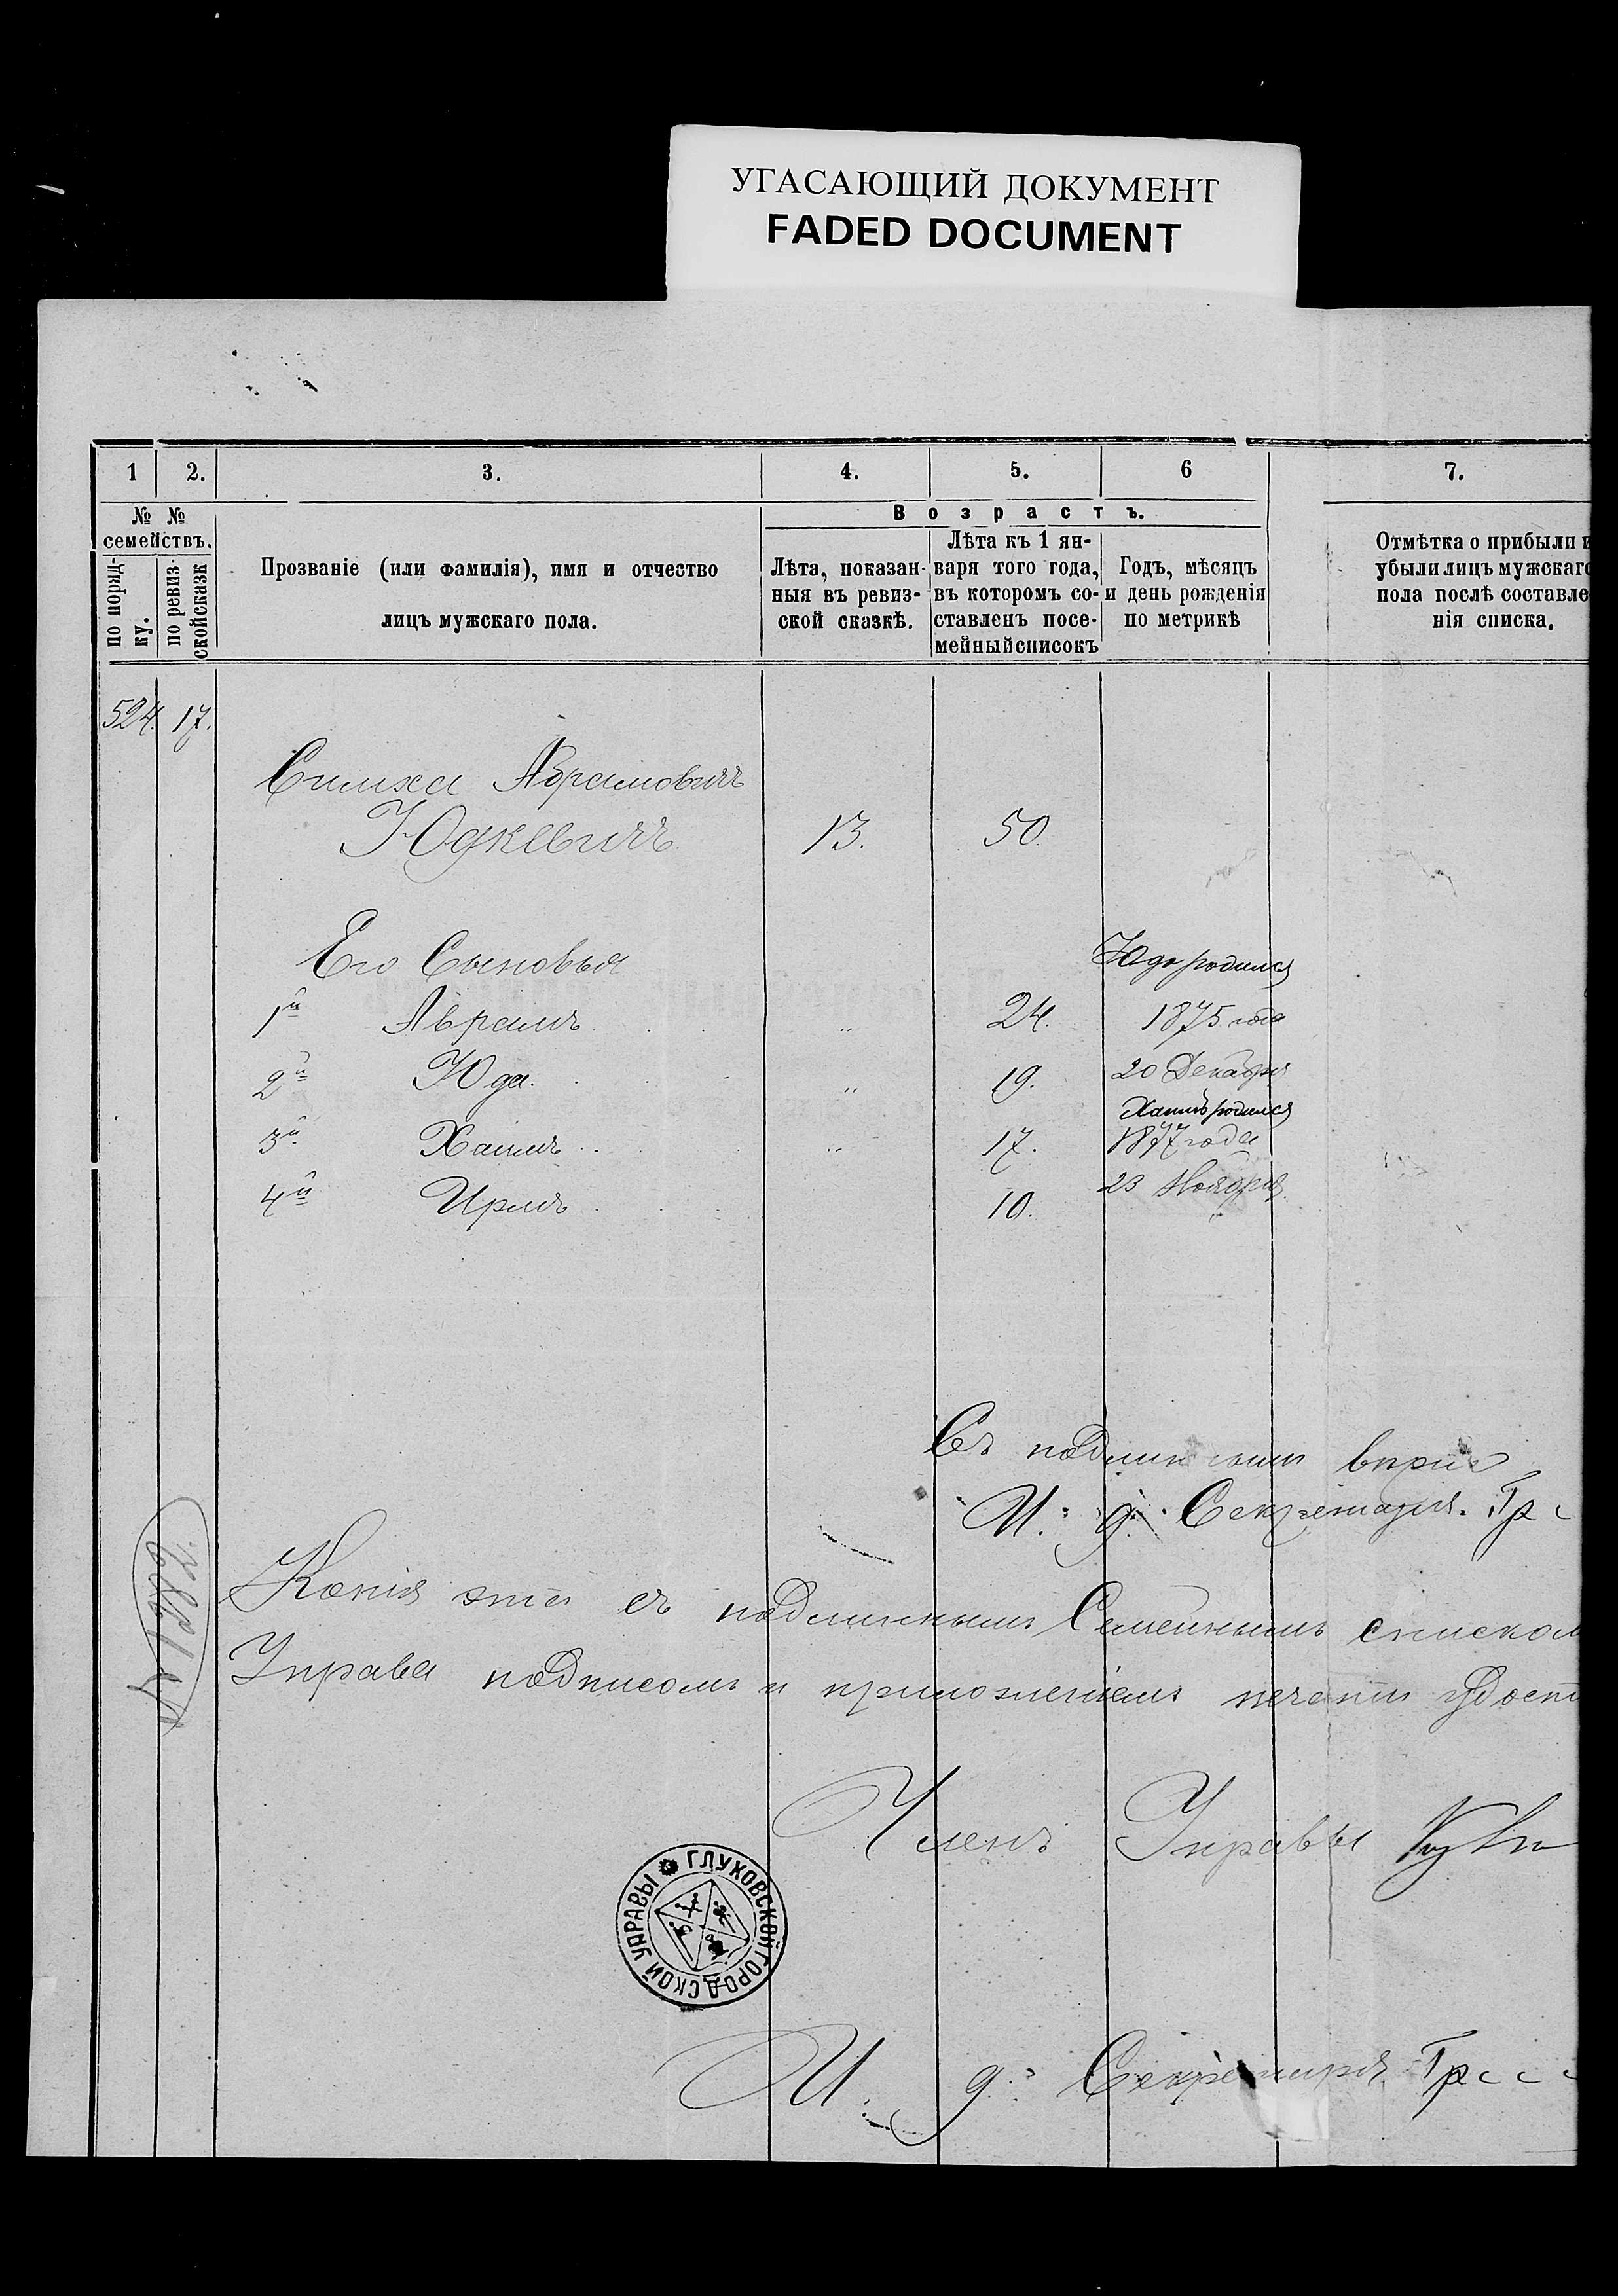 УГАСАЮЩИЙ ДОКУМЕНТ
FADED DOCUMENT
1 2. 3. 4. 5. 6 7.
№ № семействъ.
по поряд-
ку.
по ревиз-
скойсказк
Прозваніе (или фамилія), имя и отчество
лицъ мужскаго пола.
Возрастъ.
Лѣта, показан-
ныя въ ревиз-
ской сказкѣ.
Лѣта къ 1 ян-
варя того года,
въ которомъ со-
ставленъ посе-
мейныйсписокъ
Годъ, мѣсяцъ
и день рожденія
по метрикѣ
Отмѣтка о прибыли и
убыли лицъ мужскаго
пола послѣ составле
нія списка.
524. 17.
Симха Абрамовичъ
Юдкевичъ. 13. 50.
Его Сыновья Юда родился
1й Абрамъ. „ 24. 1875 года
2й Юда. „ 19. 20 Декабря
Хаимъ родился
3й Хаимъ „ 17. 1877 года
4й 10. 23 Ноября.
Съ подлиннымъ вѣрно
И. д. Секретаря. Гр
Копія эта съ подлиннымъ Семейнымъ списком
Управа подписомъ и приложеніемъ печати удост
Членъ Управы
ГЛУХОВСКОЙ ГОРОДСКОЙ УПРАВЫ
И. д. Секретаря Гр